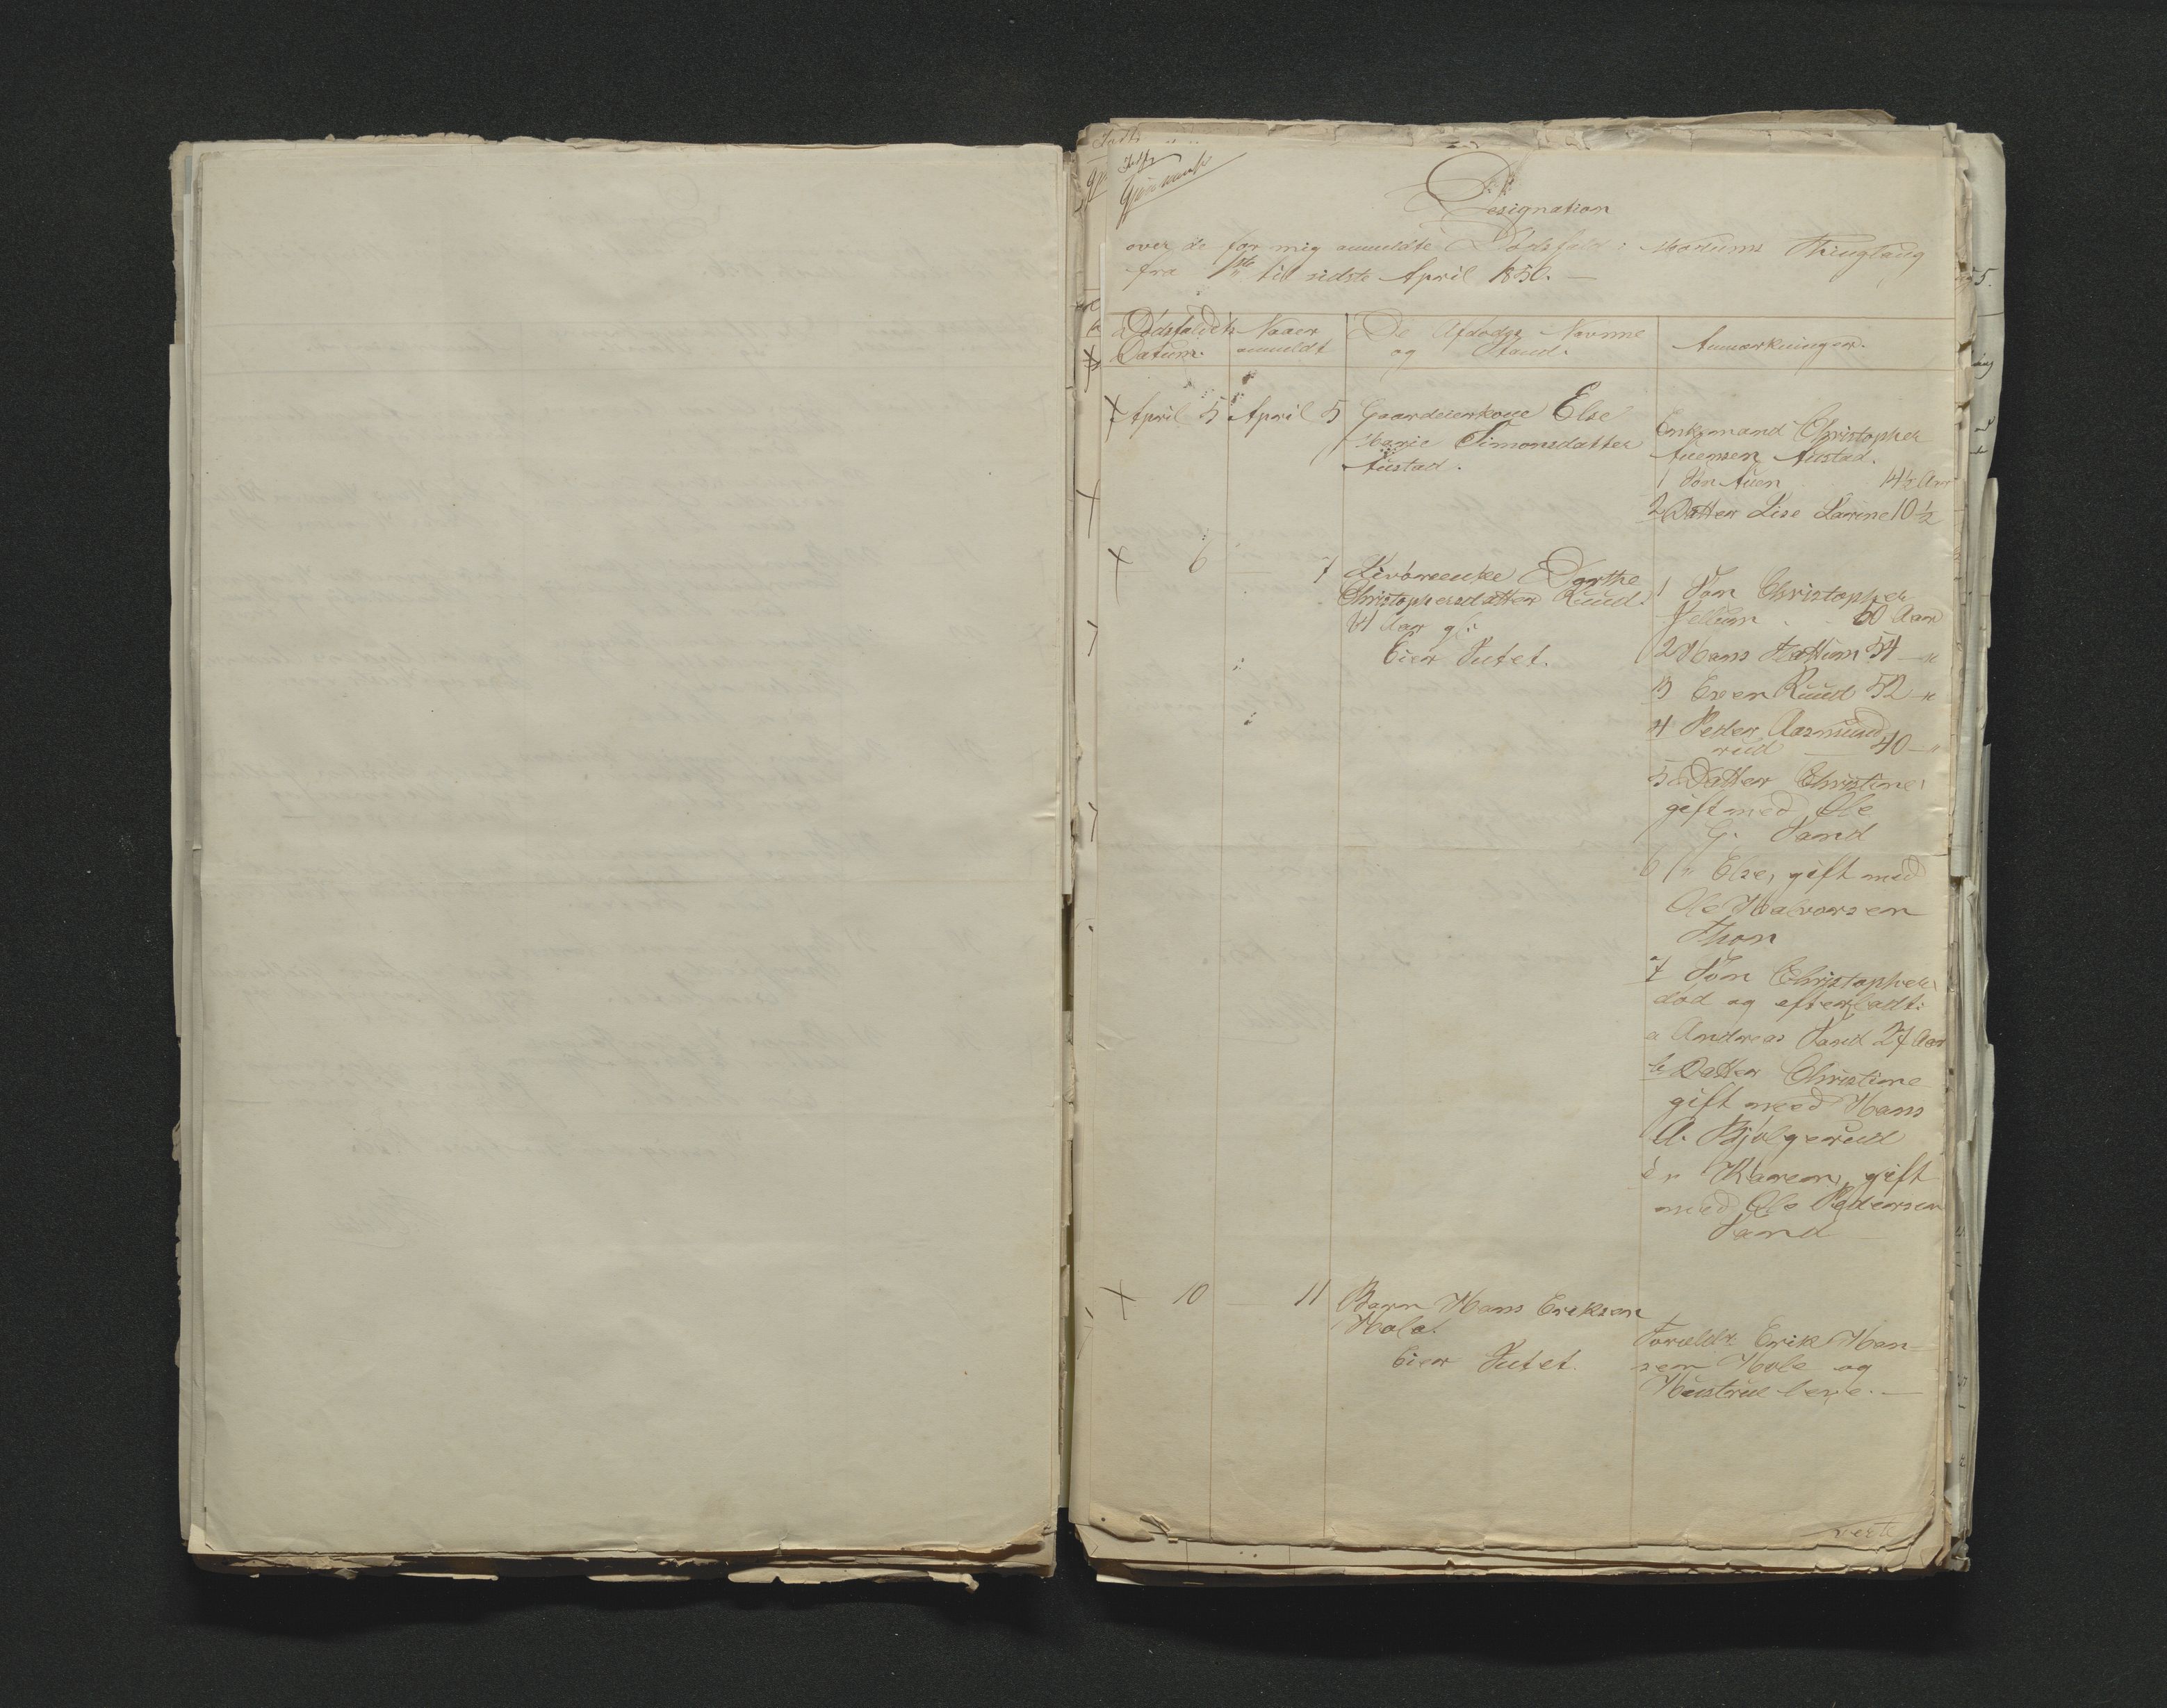 Designation
over de for mig anmeldte Dødsfald i Modums Thinglaug
fra 1ste til sidste April 1850. —
Dødsfaldets Datum.
Naar anmeldt
De Afdødes Navne og Stand.
Anmærkninger.
April 5 April 5 Gaardeierkone Else
Marie Simonsdatter
Austad.
Enkemand Christopher
Auensen Austad.
1 Søn Auen 14½ Aar
2 Datter Lise Larine 10½
6 — 7 Livøreenke Dorthe
Christophersdatter Ruud.
Aar gl:
Eier Intet.
1 Søn Christopher
60 Aar
2 Hans 54 — "
3 Even Ruud 52 — "
4 Peder Aasmund
rud — 40 — "
5 Datter Christine
gift med Ole
G. Sand
6 " Else, gift med
Ole Halvorsen
Thon
7 Søn Christopher
død og efterladt:
a Andreas Sand 27 Aar
b Datter Christine
gift med Hans
A. Bjølgerud
c " Karen, gift
med Ole Pedersen
Sand
10 — 11 Barn Hans Eriksen
Hole.
Eier Intet.
Forældr. Erik Han-
sen Hole og
Hustrue leve. —
verte